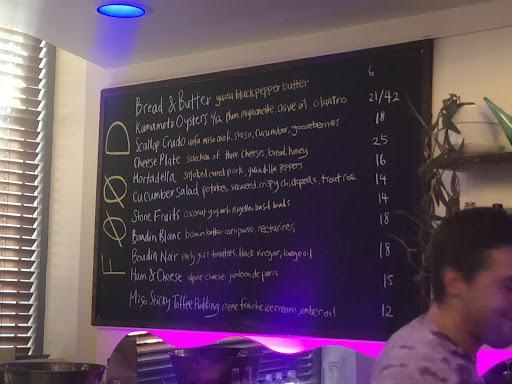 FOOD
Bread & Butter yuzu black pepper butter 6
Kumamoto Oysters 6/12 plum mignonette, chive oil, cilantro 21/42
Scallop Crudo miso aioli, shiso, cucumber, gooseberries 18
Cheese Plate selection of three cheeses, bread, honey 25
Mortadella smoked cured pork, guindilla peppers 16
Cucumber Salad potatoes, seaweed, crispy chickpeas, trout roe 14
Stone Fruits coconut yogurt nigella basil 14
Boudin Blanc brown butter nectarines 18
Boudin Noir early girl tomatoes, black vinegar, lovage oil 18
Ham & Cheese alpine cheese, jambon de paris 15
Miso Sticky Toffee Pudding creme fraiche ice cream, amber oil 12